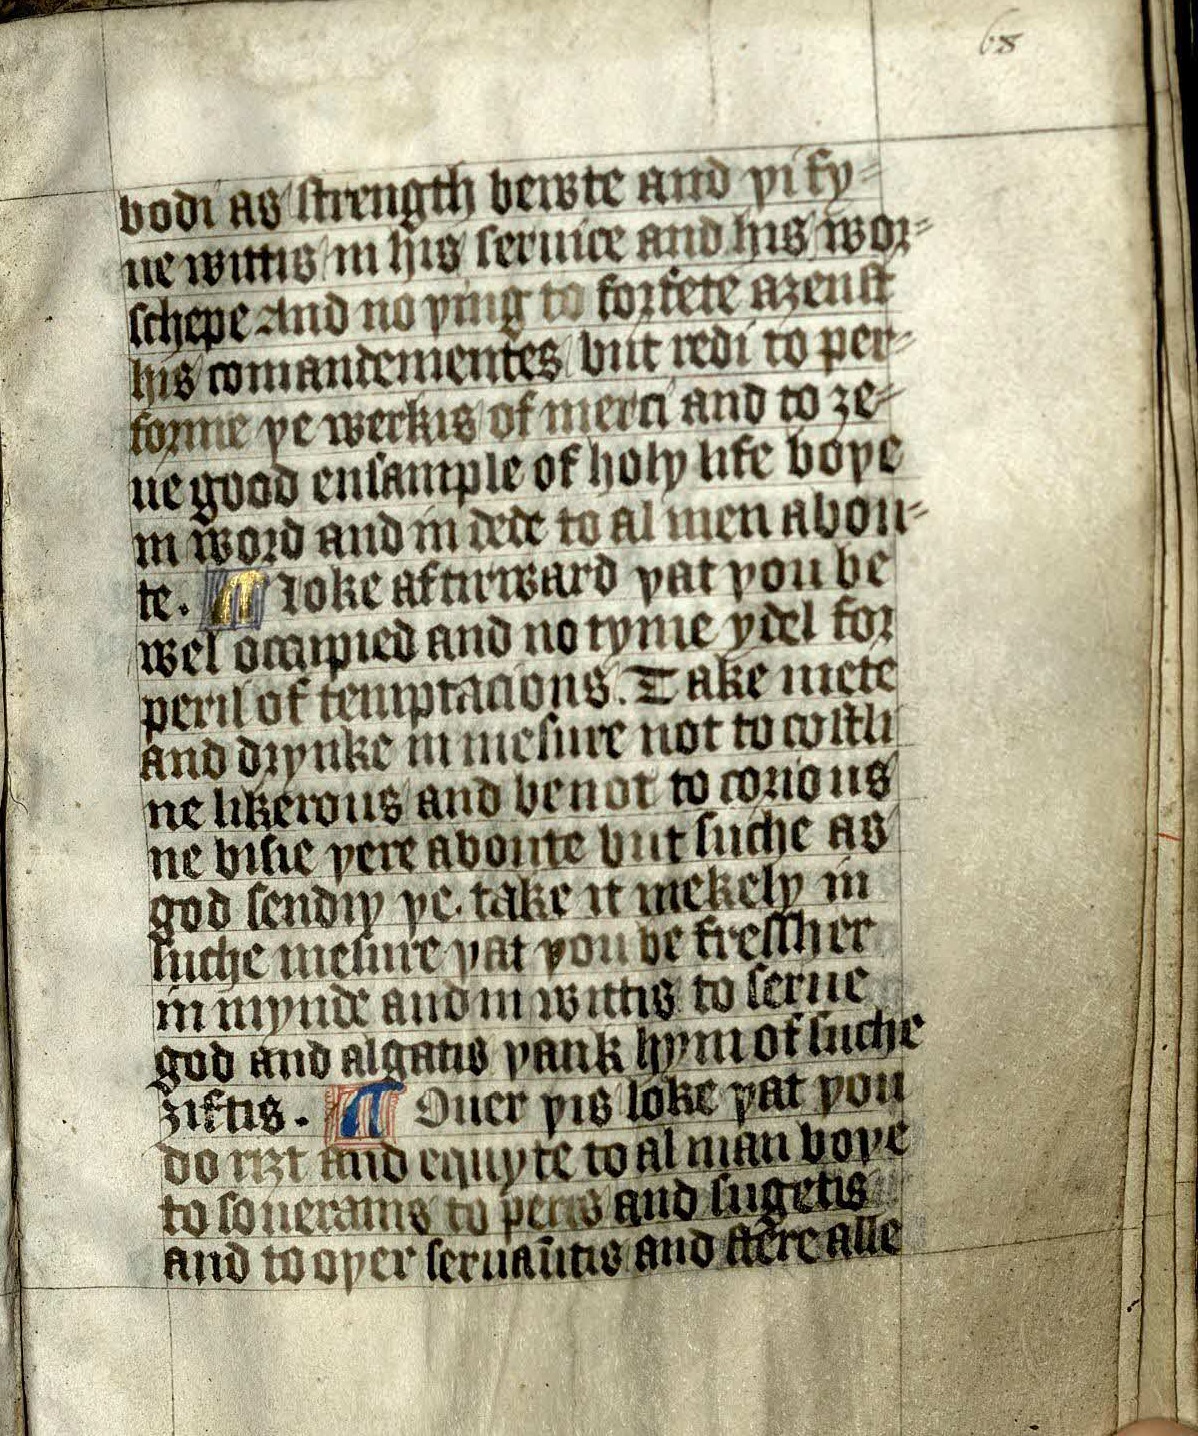 68
bodi as strength bewte and þi fy-
ue wittis in his seruice and his wor-
schepe And no þing to forfete aȝenst
his comandementes but redi to per-
forme þe werkis of merci and to ȝe-
ue good ensample of holy life boþe
in word and in dede to al men abou-
te. ¶ Loke aftirward þat þou be
wel occupied and no tyme ydel for
peril of temptacions. Take mete
and drynke in mesure not to costli
ne likerous and be not to corious
ne bisie þere aboute but suche as
god sendiþ þe. take it mekely in
suche mesure þat þou be fressher
in mynde and in wittis to serue
god and algatis þank hym of suche
ȝiftis. ¶ Ouer þis loke þat þou
do riȝt and equyte to al man boþe
to souerains to peris and sugetis
and to oþer seruañtis and alle